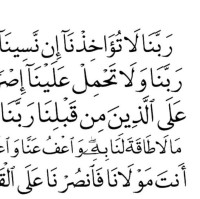 رَبَّنَا لَا تُؤَاخِذْنَآ إِن نَّسِينَآ
رَبَّنَا وَلَا تَحْمِلْ عَلَيْنَآ إِصْرًا
عَلَى ٱلَّذِينَ مِن قَبْلِنَا رَبَّنَا
مَا لَا طَاقَةَ لَنَا بِهِۦ وَٱعْفُ عَنَّا وَٱغْ
أَنتَ مَوْلَانَا فَٱنصُرْنَا عَلَى ٱلْقَ